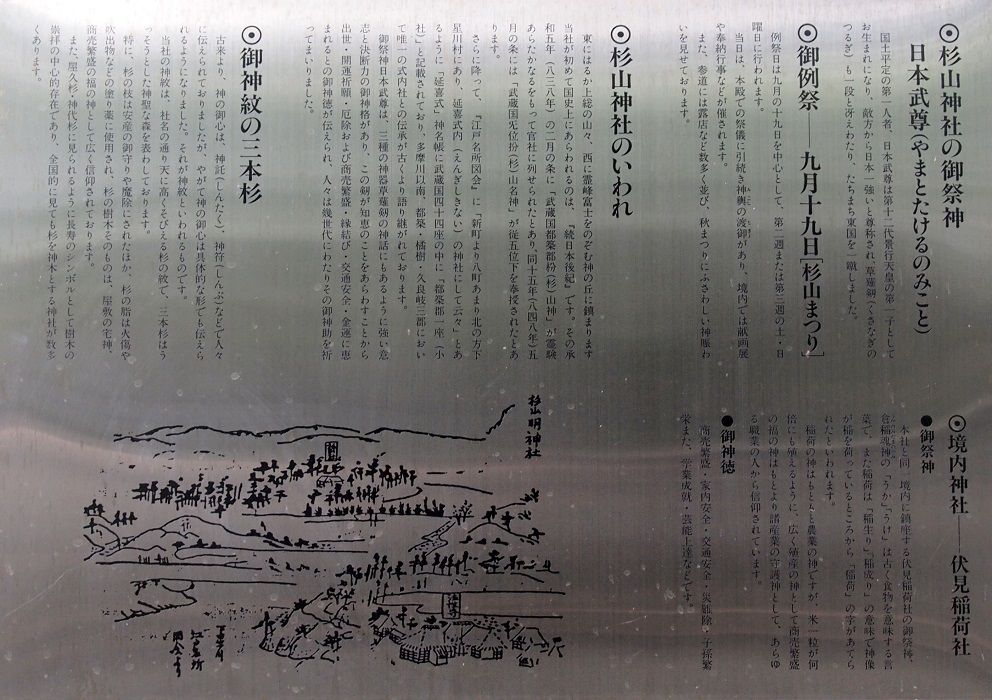 ◉杉山神社の御祭神
日本武尊(やまとたけるのみこと)
国土平定の第一人者、日本武尊は第十二代景行天皇の第一子として
お生まれになり、敵方から日本一強いと尊称され、草薙剱(くさなぎの
つるぎ)も一段と冴えわたり、たちまち東国を一蹴しました。
◉御例祭──九月十九日[杉山まつり]
例祭日は九月の十九日を中心として、第二週または第三週の土・日
曜日に行われます。
当日は、本殿での祭儀に引続き神輿の渡御があり、境内では献画展
や奉納行事などが催されます。
また、参道には露店など数多く並び、秋まつりにふさわしい神賑わ
いを見せております。
◉杉山神社のいわれ
東にはるか上総の山々、西に霊峰富士をのぞむ神の丘に鎮まります
当社が初めて国史上にあらわれるのは、『続日本後紀』です。その承
和五年(八三八年)の二月の条に「武蔵国都築郡枌(杉)山神」が霊験
あらたかなるをもって官社に列せられたとあり、同十五年(八四八年)五
月の条には「武蔵国无位枌(杉)山名神」が従五位下を奉授されたとあ
ります。
さらに降って、『江戸名所図会』に「新町より八町あまり北の方下
星川村にあり、延喜式内(えんぎしきない)の神社にして云々」とあ
るように『延喜式』神名帳に武蔵国四十四座の中に「都築郡一座(小
社)」と記載されており、多摩川以南、都築・橘樹・久良岐三郡におい
て唯一の式内社との伝承が古くより語り継がれております。
御祭神日本武尊は、三種の神器草薙剱の神話にもあるように強い意
志と決断力の御神格があり、この剱が知恵のことをあらわすことから
出世・開運祈願・厄除および商売繁盛・縁結び・交通安全・金運に恵
まれるとの御神徳が伝えられ、人々は幾世代にわたりその御神助を祈
ってまいりました。
◉御神紋の三本杉
古来より、神の御心は、神託(しんたく)、神符(しんぷ)などで人々
に伝えられておりましたが、やがて神の御心は具体的な形でも伝えら
れるようになりました。それが神紋といわれるものです。
当社の神紋は、社名の通り天に高くそびえる杉の紋で、三本杉はう
っそうとした神聖な森を表わしております。
特に、杉の枝は安産の御守りや魔除にされたほか、杉の脂は火傷や
吹出物などの塗り薬に使用され、杉の樹木そのものは、屋敷の宅神、
商売繁盛の福の神として広く信仰されております。
また、屋久杉・神代杉に見られるように長寿のシンボルとして樹木の
崇拝の中心的存在であり、全国的に見ても杉を神木とする神社が数多
くあります。
◉境内神社──伏見稲荷社
●御祭神
本社と同一境内に鎮座する伏見稲荷社の御祭神、
倉稲魂神の「うか」「うけ」は古く食物を意味する言
葉で、また稲荷は「稲生り」「稲成り」の意味で神像
が稲を荷っているところから「稲荷」の字があてら
れたといわれます。
稲荷の神はもともと農業の神ですが、米一粒が何
倍にも殖えるように、広く殖産の神として商売繁盛
の福の神はもとより諸産業の守護神として、あらゆ
る職業の人から信仰されています。
●御神徳
商売繁盛・家内安全・交通安全・災難除・子孫繁
栄また、学業成就・芸能上達などです。
杉山明神社